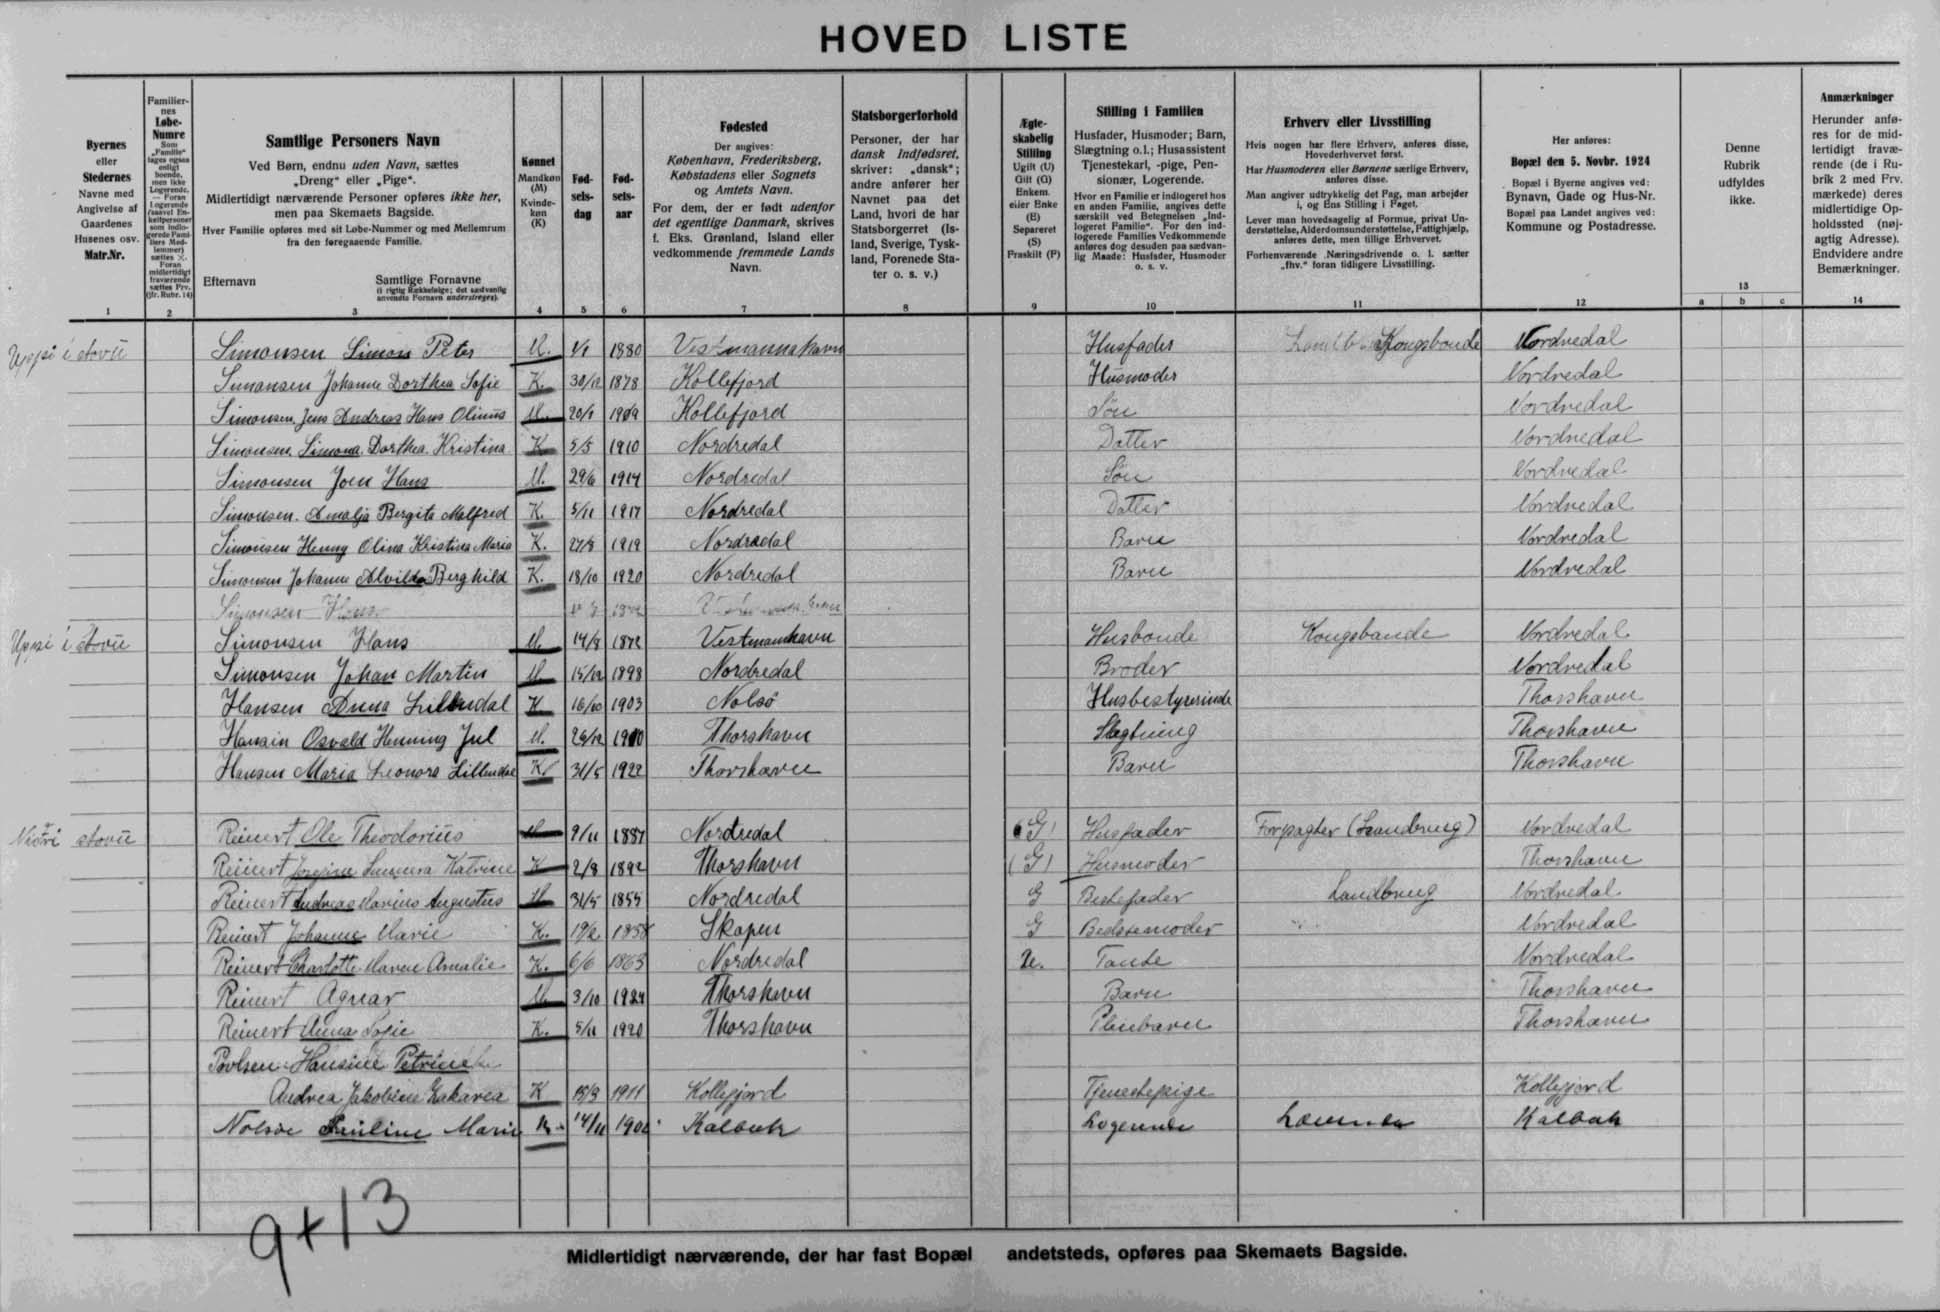 HOVED LISTE
Byernes
eller
Stedernes
Navne med
Angivelse af
Gaardenes
Husenes osv.
Matr.Nr.
1
Familier-
nes
Løbe-
Numre
Som
„Familie“
tages ogsaa
enligt
boende,
men ikke
Logerende.
— Foran
Logerende
(saavel En-
keltpersoner
som indlo-
gerede Fami-
liers Med-
lemmer)
sættes ×.
Foran
midlertidigt
fraværende
sættes Frv.
(jfr. Rubr. 14)
2
Samtlige Personers Navn
Ved Børn, endnu uden Navn, sættes
„Dreng“ eller „Pige“.
Midlertidigt nærværende Personer opføres ikke her,
men paa Skemaets Bagside.
Hver Familie opføres med sit Løbe-Nummer og med Mellemrum
fra den foregaaende Familie.
Efternavn Samtlige Fornavne
(i rigtig Rækkefølge; det sædvanlig
anvendte Fornavn understreges).
3
Kønnet
Mandkøn
(M)
Kvinde-
køn
(K)
4
Fød-
sels-
dag
5
Fød-
sels-
aar
6
Fødested
Der angives:
København, Frederiksberg,
Købstadens eller Sognets
og Amtets Navn.
For dem, der er født udenfor
det egentlige Danmark, skrives
f. Eks. Grønland, Island eller
vedkommende fremmede Lands
Navn.
7
Statsborgerforhold
Personer, der har
dansk Indfødsret,
skriver: „dansk“;
andre anfører her
Navnet paa det
Land, hvori de har
Statsborgerret (Is-
land, Sverige, Tysk-
land, Forenede Sta-
ter o. s. v.)
8
Ægte-
skabelig
Stilling
Ugift (U)
Gift (G)
Enkem.
eller Enke
(E)
Separeret
(S)
Fraskilt (F)
9
Stilling i Familien
Husfader, Husmoder; Barn,
Slægtning o.l.; Husassistent
Tjenestekarl, -pige, Pen-
sionær, Logerende.
Hvor en Familie er indlogeret hos
en anden Familie, angives dette
særskilt ved Betegnelsen „Ind-
logeret Familie“. For den ind-
logerede Families Vedkommende
anføres dog desuden paa sædvan-
lig Maade: Husfader, Husmoder
o. s. v.
10
Erhverv eller Livsstilling
Hvis nogen har flere Erhverv, anføres disse,
Hovederhvervet først.
Har Husmoderen eller Børnene særlige Erhverv,
anføres disse.
Man angiver udtrykkelig det Fag, man arbejder
i, og Ens Stilling i Faget.
Lever man hovedsagelig af Formue, privat Un-
derstøttelse, Alderdomsunderstøttelse, Fattighjælp,
anføres dette, men tillige Erhvervet.
Forhenværende Næringsdrivende o. l. sætter
„fhv.“ foran tidligere Livsstilling.
11
Her anføres:
Bopæl den 5. Novbr. 1924
Bopæl i Byerne angives ved:
Bynavn, Gade og Hus-Nr.
Bopæl paa Landet angives ved:
Kommune og Postadresse.
12
Denne
Rubrik
udfyldes
ikke.
13
a b c
Anmærkninger
Herunder anfø-
res for de mid-
lertidigt fravæ-
rende (de i Ru-
brik 2 med Frv.
mærkede) deres
midlertidige Op-
holdssted (nøj-
agtig Adresse).
Endvidere andre
Bemærkninger.
14
Uppi i stovu Simonsen Simon Peter M. 1/1 1880 Vestmannahavn Husfader Kongsbonde Nordredal
Simonsen Johanne Dorthea Sofie K. 30/12 1878 Kollefjord Husmoder Nordredal
Simonsen, Jens Andreas Hans Olinus M. 20/1 1909 Kollefjord Søn Nordredal
Simonsen, Simona. Dorthea. Kristina K 5/5 1910 Nordredal Datter Nordredal
Simonsen Joen Hans M. 29/6 1914 Nordredal Søn Nordredal
Simonsen. Amalja Bergita Malfred K. 5/11 1917 Nordredal Datter Nordredal
Simonsen Henny Olina Kristina Maria K. 27/8 1919 Nordredal Barn Nordredal
Simonsen Johanne Alvilda Berghild K. 18/10 1920 Nordredal Barn Nordredal
Simonsen Hans
Uppi i stovu Simonsen Hans M. 14/8 1872 Vestmannhavn Husbonde Kongsbonde Nordredal
Simonsen Johan Martin M 15/12 1898 Nordredal Broder Nordredal
Hansen Anna Lillendal K 16/10 1903 Nolsö Husbestyrerinde Thorshavn
Hansen Osvald Henning Jul M. 26/12 1900 Thorshavn Slægtning Thorshavn
Hansen Maria Leonora Lillendal K. 31/5 1922 Thorshavn Barn Thorshavn
Nistri stovu Reinert Ole Theodorius M 9/11 1887 Nordredal (G) Husfader Forpagter (Landbrug) Nordredal
Reinert Josefine Katrine K 2/8 1892 Thorshavn (G) Husmoder Thorshavn
Reinert Andreas Marius Augustus M 31/5 1855 Nordredal G Bestefader Landbrug Nordredal
Reinert Johanne Marie K. 19/2 1858 Skapun G Bedstemoder Nordredal
Reinert Charlotte Maren Amalie K. 6/6 1863 Nordredal U. Tante Nordredal
Reinert Agnar M 3/10 1924 Thorshavn Barn Thorshavn
Reinert Anna Sofie K. 5/11 1920 Thorshavn Pleiebarn Thorshavn
Povlsen Hansine Petrine
Andrea Jakobine Zakarea K 15/3 1911 Kollefjord Tjenestepige Kollefjord
Nolsøe Pauline Marie K. 14/11 Kalbak Logerende Kalbak
9+13
Midlertidigt nærværende, der har fast Bopæl andetsteds, opføres paa Skemaets Bagside.